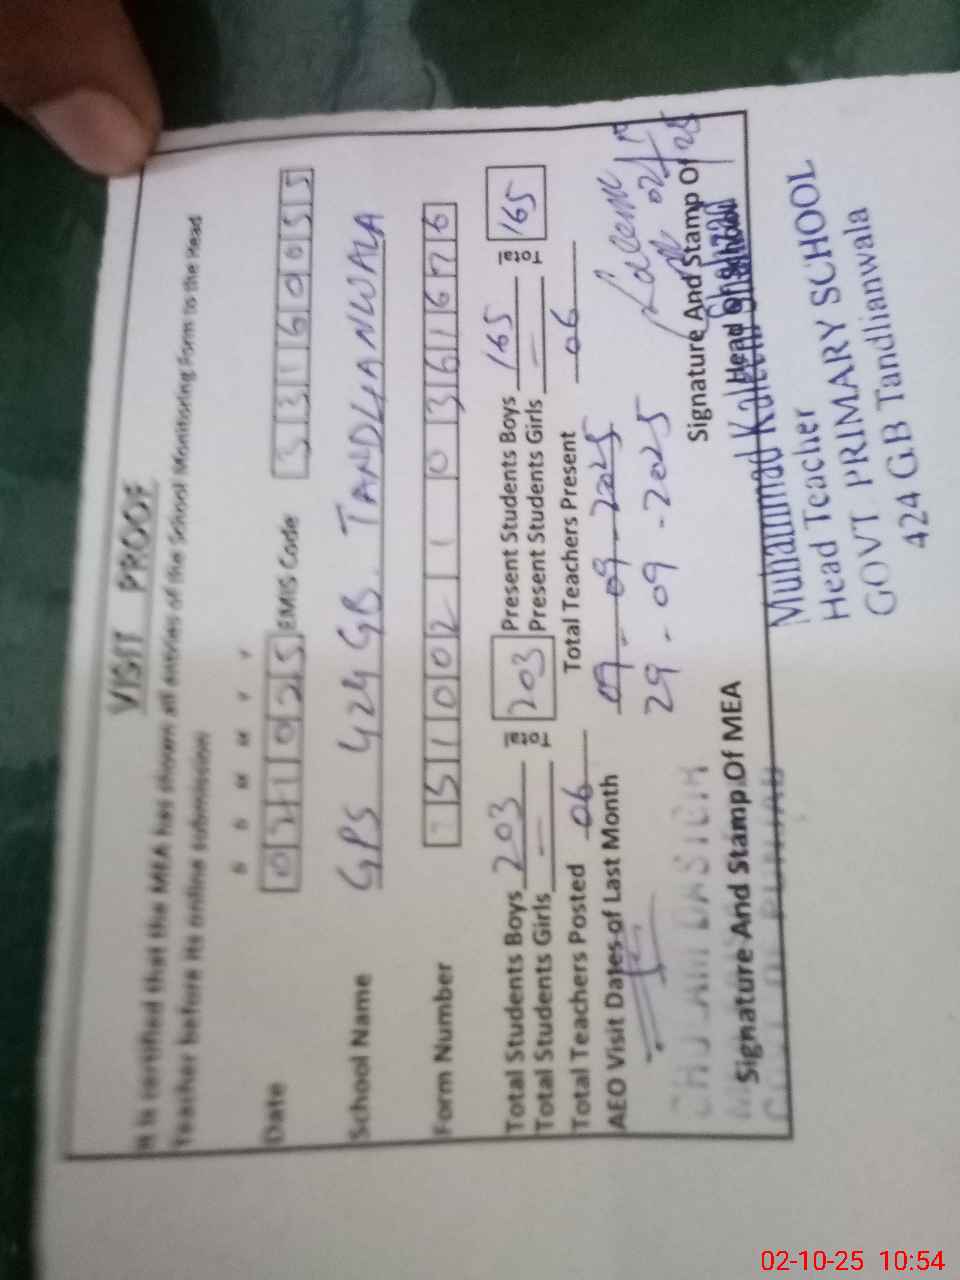 VISIT PROOF
It is certified that the MEA has shown all entries of the School Monitoring Form to the Head
Teacher before its online submission
D D M M Y Y
Date 021025 EMIS Code 33160055
School Name GPS 424 GB. TANDLIANWALA
Form Number 51002 1 0361676
Total Students Boys 203 Total 203 Present Students Boys 165 Total 165
Total Students Girls — Present Students Girls —
Total Teachers Posted 06 Total Teachers Present 06
AEO Visit Dates of Last Month 09-09-2025
29-09-2025
02/10/25
GHULAM QASIM
Signature And Stamp Of MEA
Signature And Stamp Of
Head Of School
Muhammad Kaleem Shahzad
Head Teacher
GOVT PRIMARY SCHOOL
424 G.B Tandlianwala
02-10-25 10:54